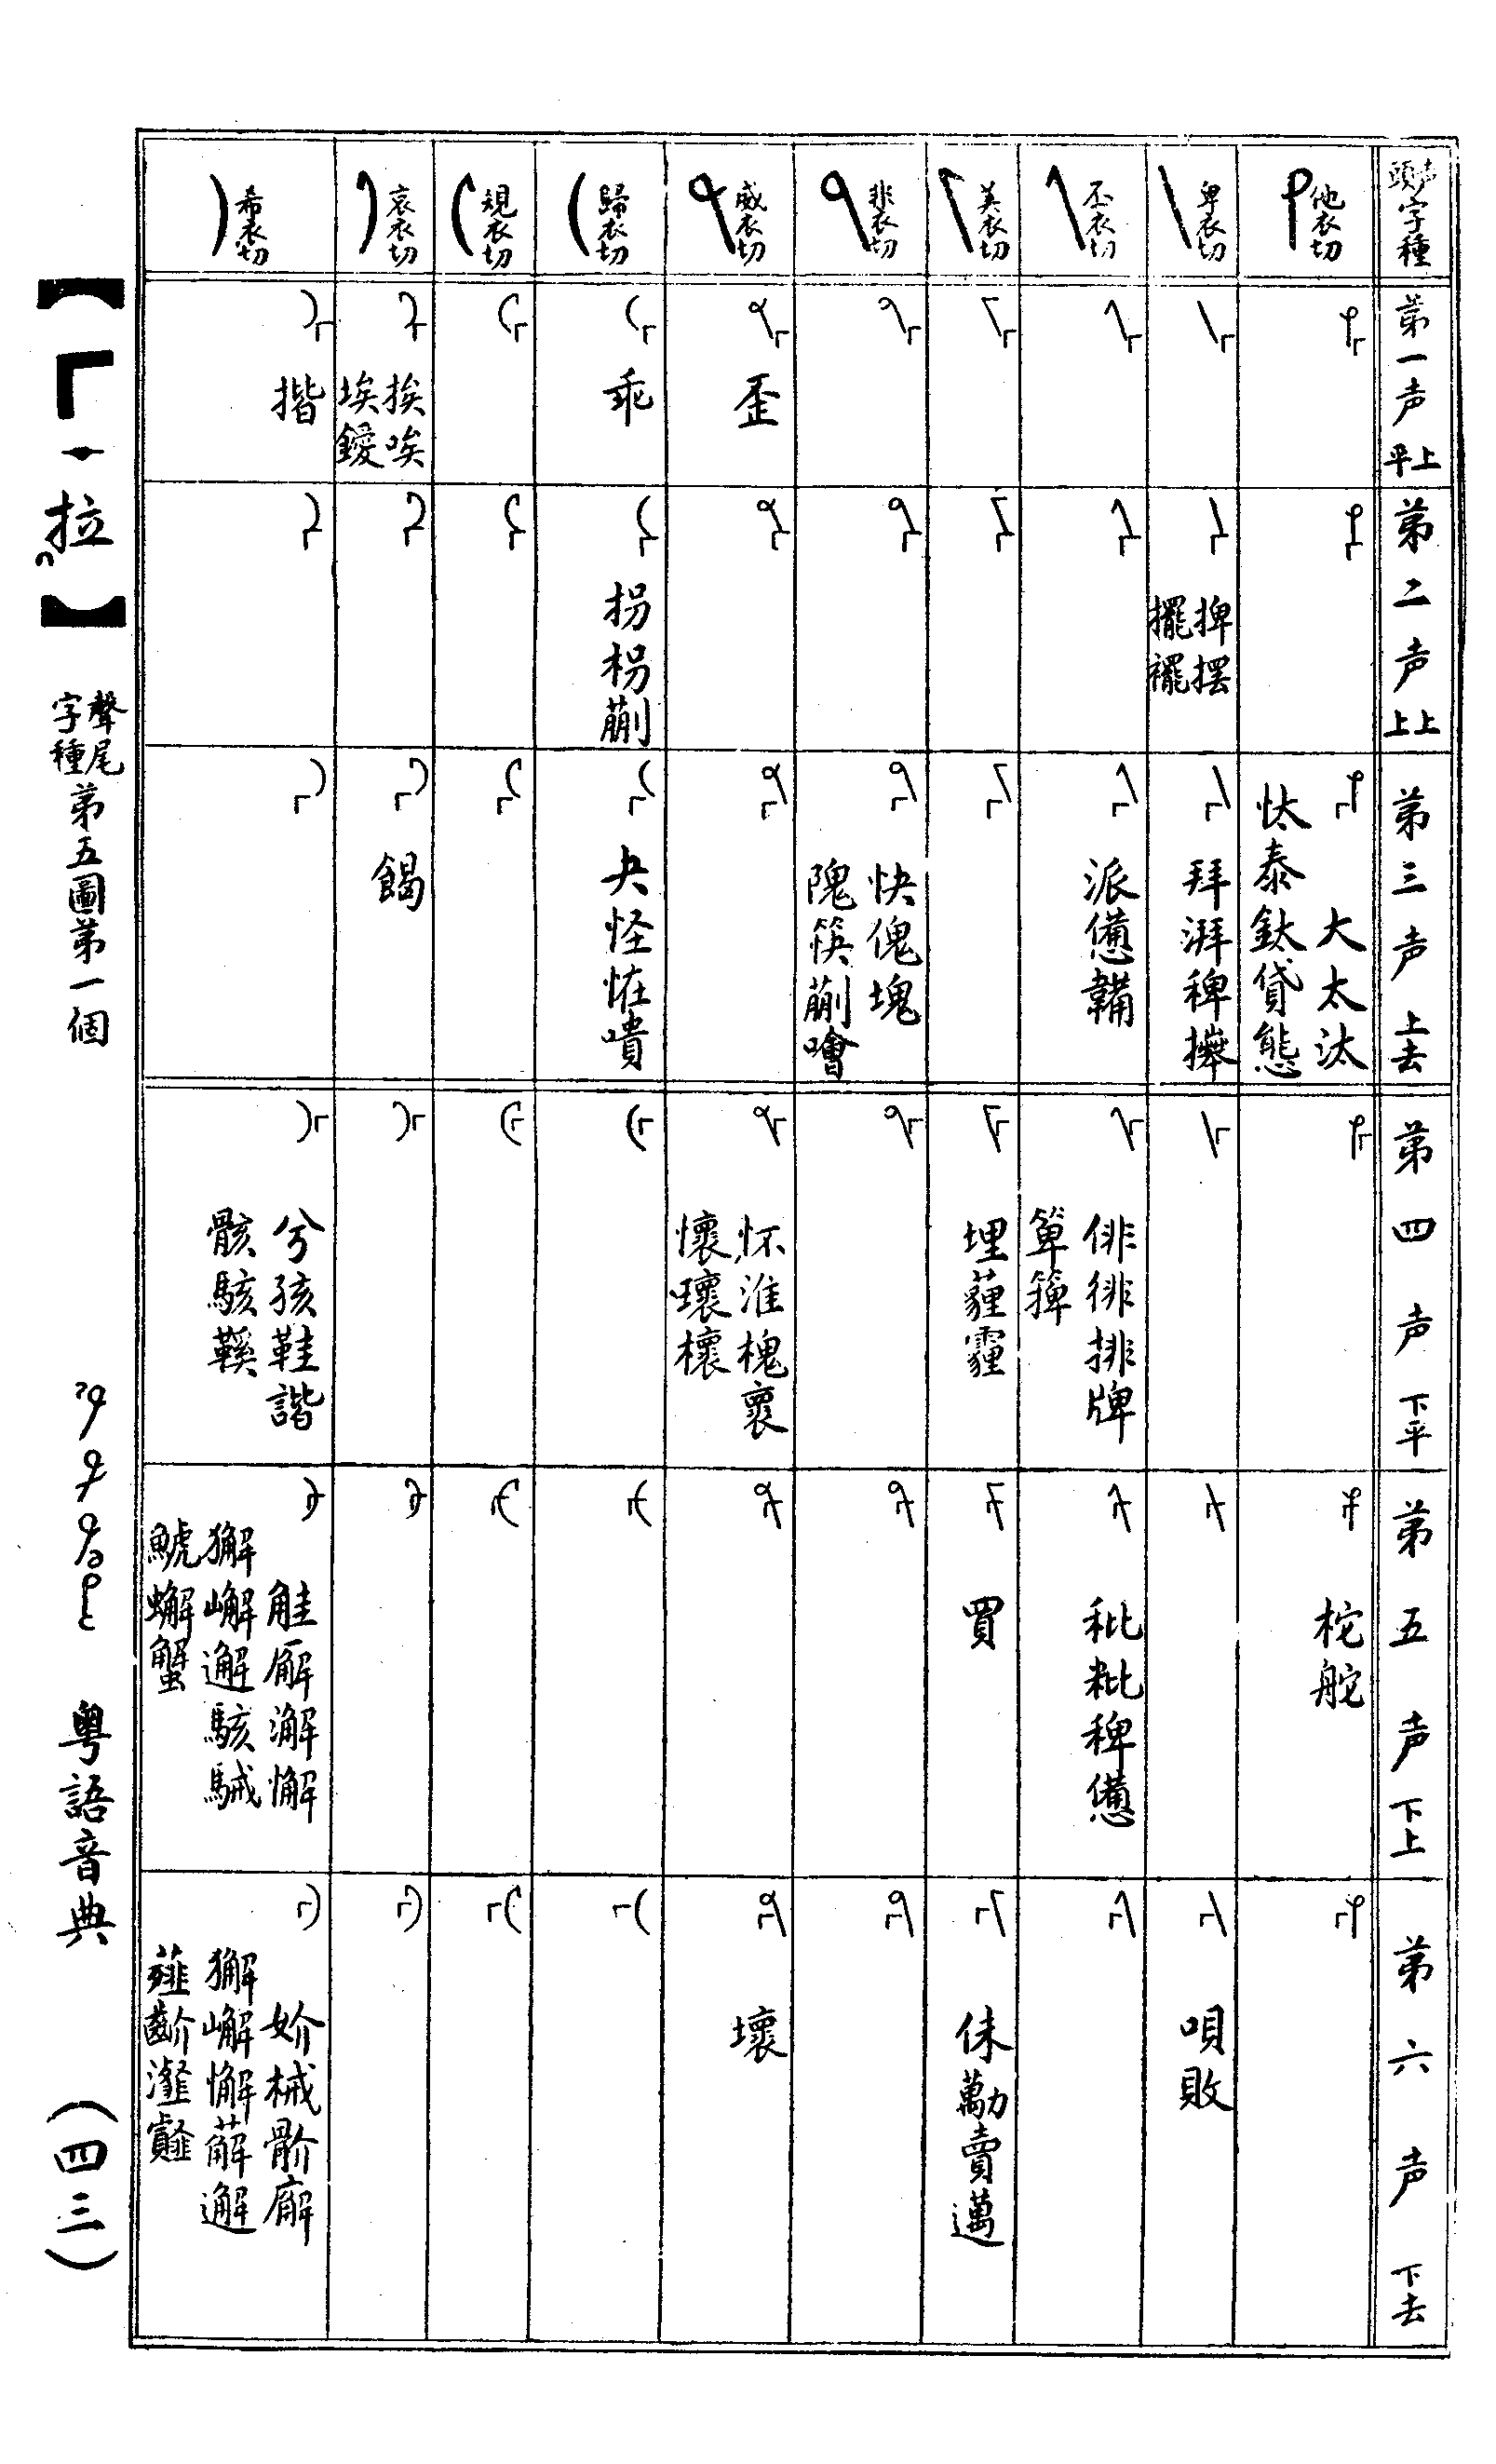 声頭字種
第一声 上平
第二声 上上
第三声 上去
第四声 下平
第五声 下上
第六声 下去
他衣切
大太汰
忲泰鈦貸態
柁舵
卑衣切
捭摆
擺襬
拜湃稗
唄敗
丕衣切
派憊韛
俳徘排牌
箄簰
秕粃稗憊
美衣切
埋薶霾
買
佅勱賣邁
非衣切
快傀塊
隗筷蒯噲
威衣切
歪
怀淮槐褱
懷瓌櫰
壞
歸衣切
乖
拐枴蒯
夬怪恠嘳
規衣切
哀衣切
挨唉
埃鑀
餲
希衣切
揩
兮孩鞋諧
骸駭鞵
觟廨澥懈
獬嶰邂駭駴
鯱蠏蟹
妎械骱廨
獬嶰懈薢邂
薤齘瀣
【 拉 】
聲尾字種第五圖第一個
粵語音典
(四三)